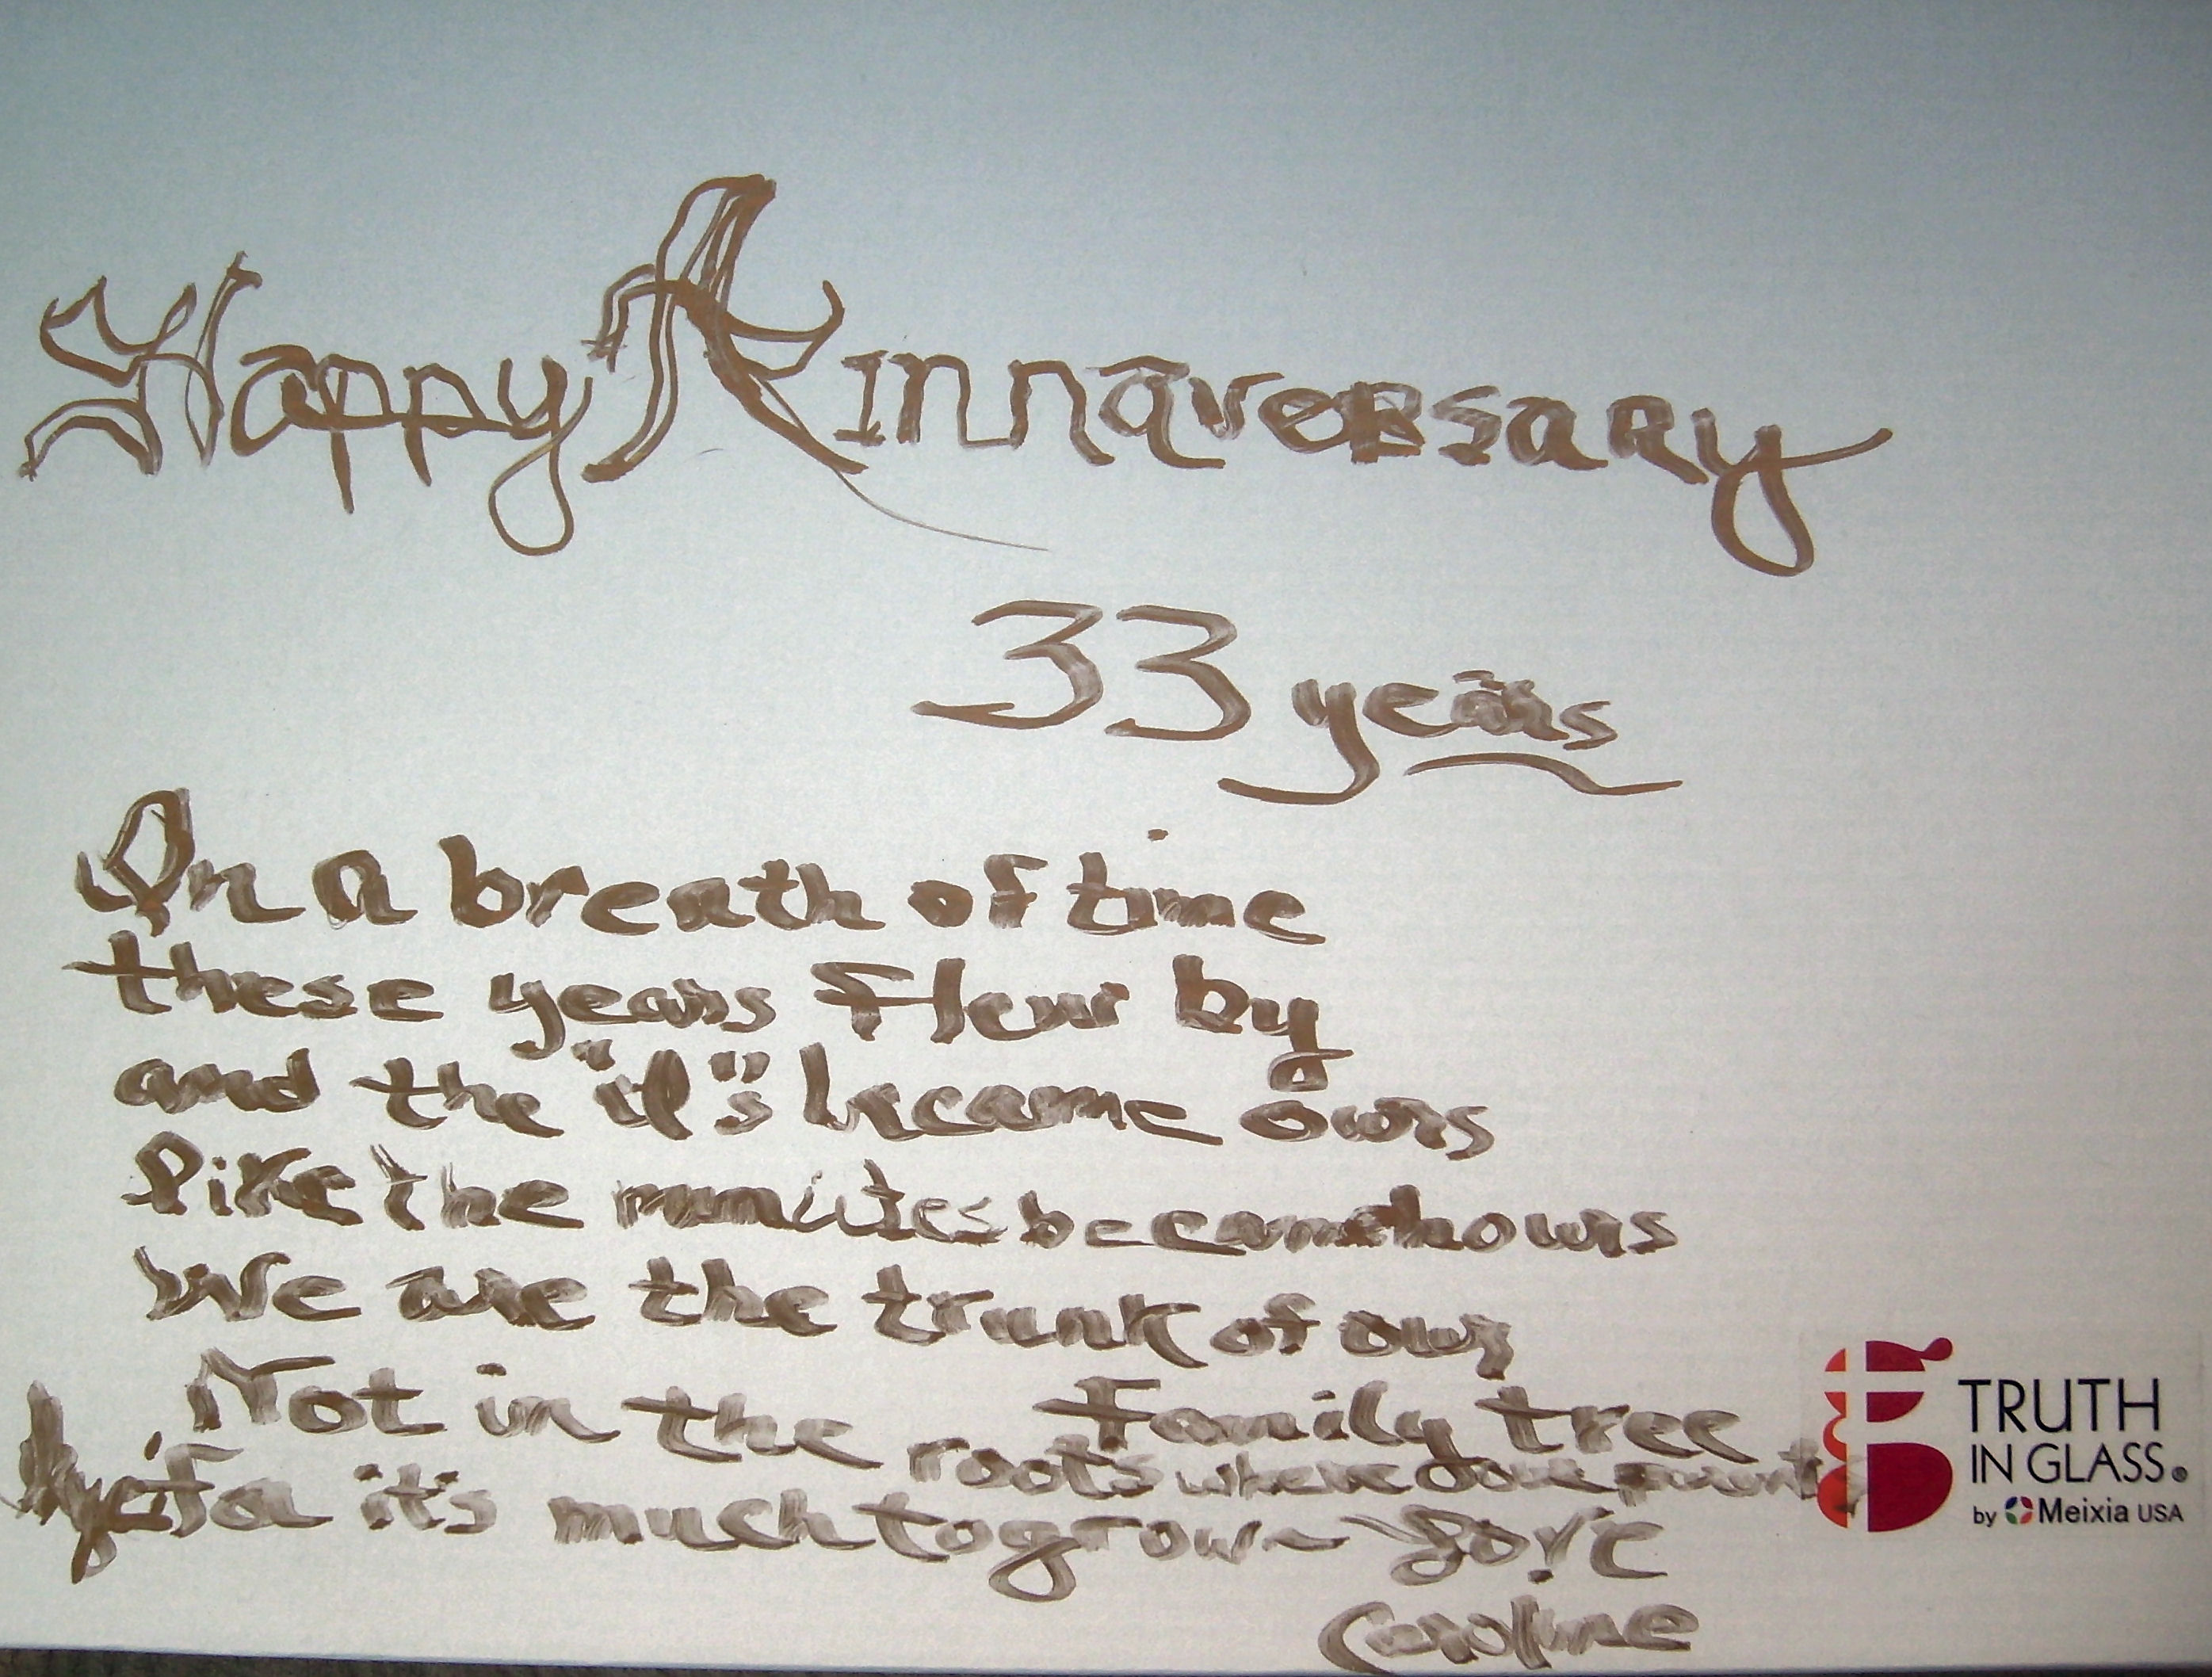 Happy Annaversary
33 years
In a breath of time
these years flew by
and the "if's" became ours
like the minutes became hours
We are the trunk of our
Family tree
Not in the roots where
it's much to grow - Love
Caroline
TRUTH
IN GLASS®
by Meixia USA